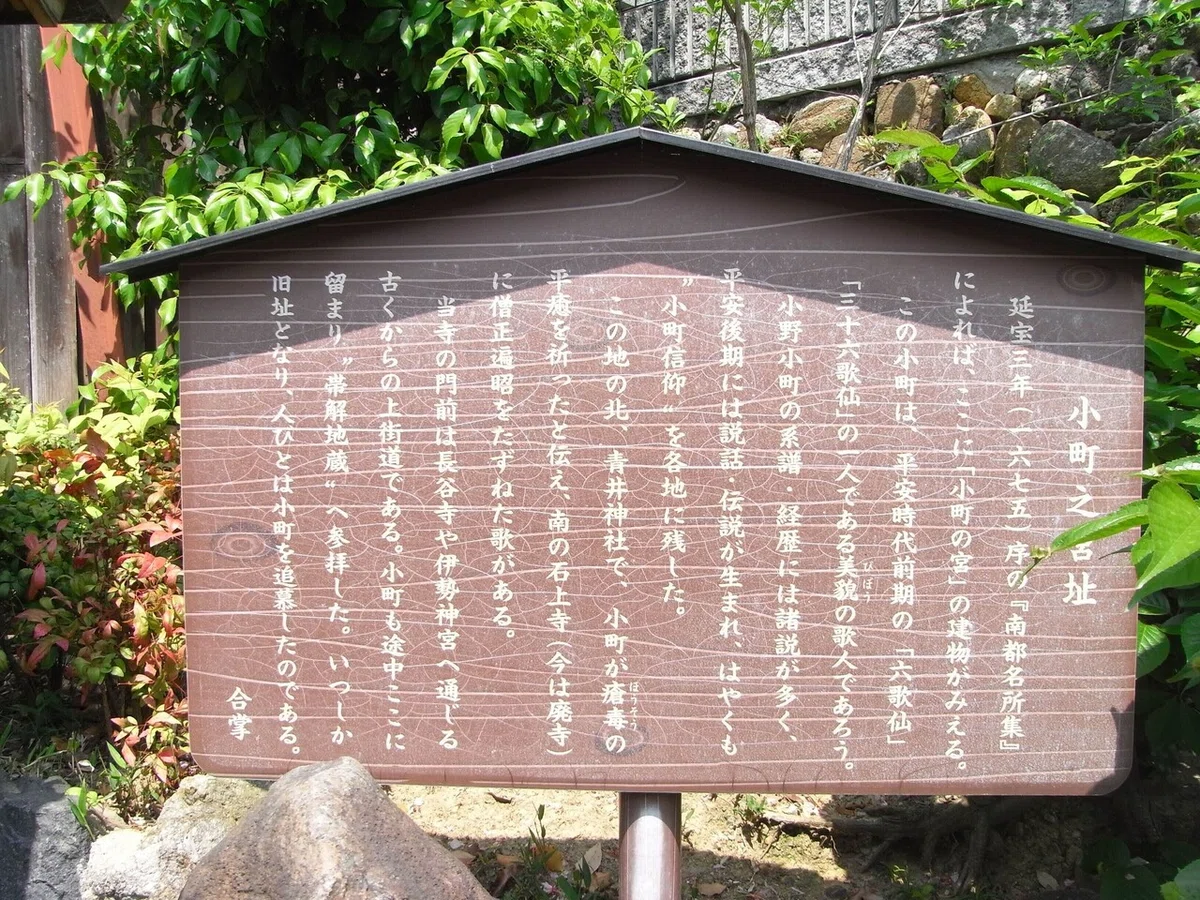 小町之宮址
延宝三年(一六七五)序の『南都名所集』
によれば、ここに「小町の宮」の建物がみえる。
この小町は、平安時代前期の「六歌仙」
「三十六歌仙」の一人である美貌の歌人であろう。
びぼう
小野小町の系譜・経歴には諸説が多く、
平安後期には説話・伝説が生まれ、はやくも
〝小町信仰〟を各地に残した。
この地の北、青井神社で、小町が瘡毒の
ぼうそう
平癒を祈ったと伝え、南の石上寺(今は廃寺)
に僧正遍昭をたずねた歌がある。
当寺の門前は長谷寺や伊勢神宮へ通じる
古くからの上街道である。小町も途中ここに
留まり〝帯解地蔵〟へ参拝した。いつしか
旧址となり、人びとは小町を追慕したのである。
合掌